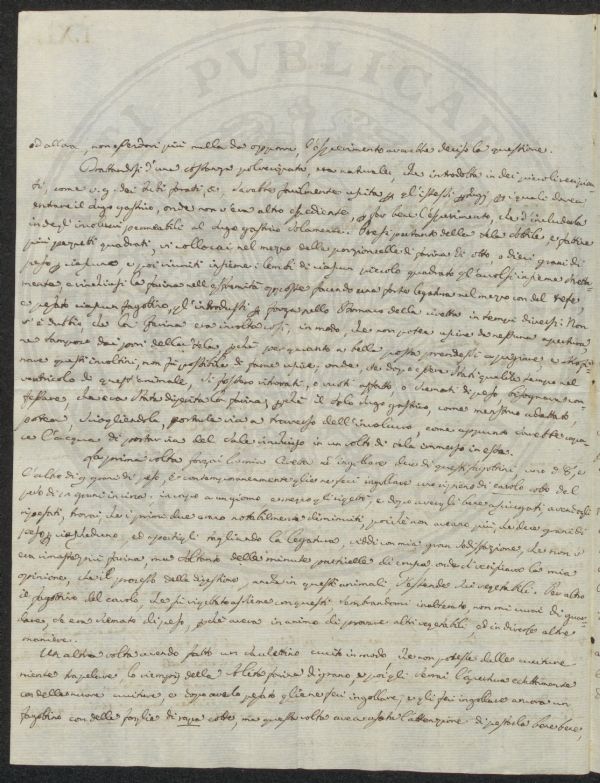 ed allora, non essendovi più nulla da opporre, l'esperimento avrebbe deciso la questione.
Trattandosi d'una sostanza polverizzata, era naturale, che introdotta in dei piccoli recipien=
ti, come v. g. dei tubi forati, sarebbe facilmente uscita per gli stessi per i quali dovea
entrare il sugo gastrico, onde non v'era altro espediente, per far ben l'esperimento, che d'includerla
in degli involucri permeabili al sugo gastrico solamente. Presi pertanto della tela sottile, e fattine
più pezzetti quadrati, vi collocai nel mezzo delle porzioncelle di farina di otto, o dieci grani di
peso per ciascuno, e poi riuniti insieme i lembi di ciascun piccolo quadrato gli avvolsi insieme stretta=
mente, e rinchiusi la farina nell'estremità opposte facendo una forte legatura nel mezzo con del refe,
e pesato ciascun fagottino, gl'introdussi per forza nello stomaco della civetta in tempi diversi. Non
vi è dubbio, che la farina era involta così, in modo, che non potea uscire da nessuna apertura,
ne tampoco dai pori della tela, perché per quanto a bella posta prendessi a
nare questi involtini, non fu possibile di farne uscire; onde, se dopo essere stati qualche tempo nel
ventricolo di quest'animale, si fossero ritrovati, o vuoti affatto, o scemati di peso, bisognava con=
fessare, che era stata digerita la farina, perché il solo sugo gastrico, come menstruo adattato,
potea, sciogliendola, portarla via a traverso dell'involucro, come appunto sarebbe capa=
ce l'acqua di portar via del sale rinchiuso in un volto di tela immerso in essa.
La prima volta forzai la mia civetta ad ingollare due di questi fagottini, uno di 8, e
l'altro di 9 grani di peso, e contemporaneamente gliene feci ingollare uno ripieno di cavolo cotto del
peso di 20 grani incirca: in capo a un giorno essa gli rigettò, e dopo avergli bene asciugati, avendogli
ripesati, trovai, che i primi due erano notabilmente diminuiti, poiché non aveano più, che due grani di
peso per ciascheduno, ed apertigli tagliando la legatura, viddi con mia gran sodisfazione, che non v'
era rimasta più farina, ma soltanto delle minute particelle di crusca, onde si verificava la mia
opinione, che il processo della digestione, anche in questi animali, s'estende sui vegetabili. Per altro
il fagottino del cavolo, che fu rigettato assieme con questi, sembrandomi inalterato, non mi curai di guar=
dare, se era scemato di peso, perché aveva in animo di provare altri vegetabili, ed in diverse altre
maniere.
Un'altra volta avendo fatto un sacchettino cucito in modo che non potesse dalle cuciture
niente trapelare, lo riempij della solita farina di grano, e poi gli serrai l'apertura esattamente
con delle nuove cuciture, e dopo averlo pesato glielo feci ingollare, e gli feci ingollare ancora un
fagottino con delle foglie di rapa cotte, ma questa volta aveva usata l'attenzione di pestarle bene bene,